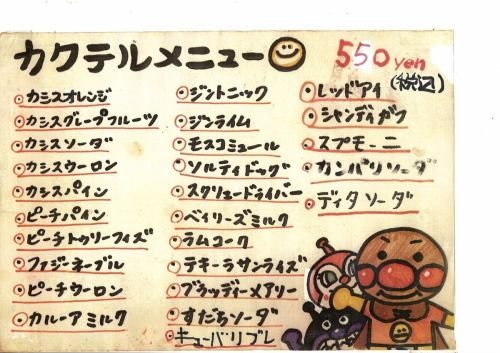 カクテルメニュー
550yen
(税込)
カシスオレンジ
カシスグレープフルーツ
カシスソーダ
カシスウーロン
カシスパイン
ピーチパイン
ピーチトゥリーフィズ
ファジーネーブル
ピーチウーロン
カルーアミルク
ジントニック
ジンライム
モスコミュール
ソルティドッグ
スクリュードライバー
ベイリーズミルク
ラムコーク
テキーラサンライズ
ブラッディーメアリー
すだちソーダ
キューバリブレ
レッドアイ
シャンディガフ
スプモーニ
カンパリソーダ
ディタソーダ